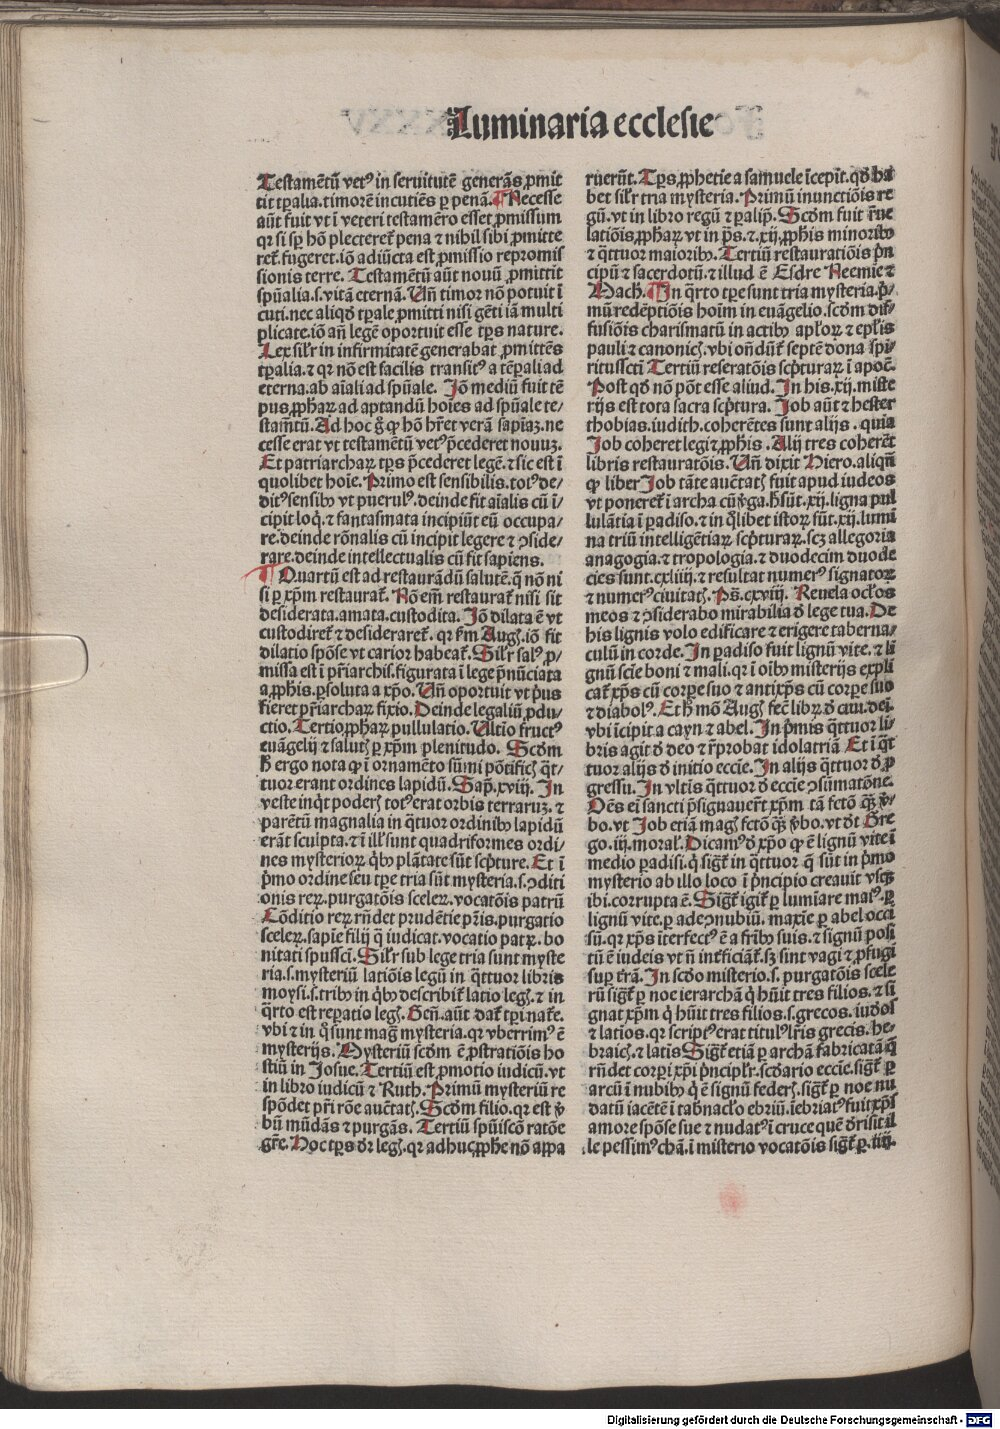 Luminaria ecclesie
Testamētū vetꝰ in seruitutē generās ꝓmit
tit tꝑalia. timorē incutiēs ꝑ penā. ¶ Necesse
aūt fuit vt ī veteri testamēto esset ꝓmissum
qr si sꝑ hō plecteret᷑ pena ⁊ nihil sibi ꝓmitte
ret᷑. fugeret. iō adiūcta est ꝓmissio repromis
sionis terre. Testamētū aūt nouū ꝓmittit
spūalia. s. vitā eternā. Vñ timor nō potuit ī
cuti. nec aliqd̄ tꝑale ꝓmitti nisi gēti iā multi
plicate. iō añ legē oportuit esse tꝑs nature.
Lex silr̄ in infirmitatē generabat ꝓmittēs
tꝑalia. ⁊ qr nō est facilis transitꝰ a tēꝑali ad
eterna. ab aīali ad spūale. Iō mediū fuit tē
pus ꝓphaꝝ ad aptandū hoīes ad spūale te/
stam̄tū. Ad hoc g̊ ꝙ hō hr̄et verā sapīaz. ne
cesse erat vt testamētū vetꝰ p̄cederet nouuz.
Et patriarchaꝝ tꝑs p̄cederet legē. ⁊ sic est ī
quolibet hoīe. Primo est sensibilis. totꝰ de/
ditꝰ sensibꝫ vt puerulꝰ. deinde fit aīalis cū ī/
cipit loq̇. ⁊ fantasmata incipiūt eū occupa/
re. deinde rōnalis cū incipit legere ⁊ ꝯside/
rare. deinde intellectualis cū fit sapiens.
¶ Quartū est ad restaurādū salutē. q̄ nō ni
si ꝑ xp̄m restaurat᷑. Nō em̄ restaurat᷑ nisi sit
desiderata. amata. custodita. Iō dilata ē vt
custodiret᷑ ⁊ desideraret᷑. qr km̄ Augꝫ. iō fit
dilatio spōse vt carior habeat᷑. Silr̄ salꝰ ꝓ/
missa est ī pr̄iarchis. figurata ī lege p̄nūciata
a ꝓphis. ꝑsoluta a xp̄o. Vñ oportuit vt p̄us
fieret pr̄iarchaꝝ fixio. Deinde legaliū ꝓdu/
ctio. Tertio ꝓphaꝝ pullulatio. Vltīo fructꝰ
euāgelij ⁊ salutꝫ ꝑ xp̄m plenitudo. Scdm
h̄ ergo nota ꝙ ī ornamēto sūmi pōtificꝫ q̄t/
tuor erant ordines lapidū. Sap̄. xviij. In
veste inqt poderꝫ totꝰ erat orbis terraruz. ⁊
parētū magnalia in q̄tuor ordinibꝫ lapidū
erāt sculpta. ⁊ ī ill̄ sunt quadriformes ordi/
nes mysterioꝝ q̇bꝫ plātate sūt scp̄ture. Et ī
p̄mo ordine seu tꝑe tria sūt mysteria. s. ꝯditi
onis reꝝ. purgatōis sceleꝝ. vocatōis patrū
Cōditio reꝝ rn̄det prudētie pr̄is. purgatio
sceleꝝ. sapīe filij q̄ iudicat. vocatio patꝝ. bo
nitati spussc̄i. Silr̄ sub lege tria sunt myste
ria. s. mysteriū latiōis legū in q̄ttuor libris
moysi. s. tribꝫ in q̇bꝫ describit᷑ latio legꝫ. ⁊ in
q̄rto est reꝑatio legꝫ. Gen̄. aūt dat᷑ tꝑi nat᷑e.
vbi ⁊ in q̄ sunt mag̃ mysteria. qr vberrimꝰ ē
mysterijs. Mysteriū scdm ē ꝓstratiōis ho
stiū in Josue. Tertiū est ꝓmotio iudicū. vt
in libro iudicū ⁊ Ruth. Primū mysteriū re
spōdet pr̄i rōe auc̄tatꝫ. Scdm filio. qr est ꝟ
bū mūdās ⁊ purgās. Tertiū spūiscō ratōe
gr̄e. Hoc tꝑs dr̄ legꝫ. qr adhuc ꝓphe nō appa
ruerūt. Tꝑs ꝓphetie a samuele īcepit. qd̄ ha
bet silr̄ tria mysteria. Primū inunctiōis re
gū. vt in libro regū ⁊ ꝑalip̄. Scdm fuit r̄ue
latiōis ꝓphaꝝ vt in p̄s. ⁊. xij. ꝓphis minoribꝫ
⁊ q̄ttuor maioribꝫ. Tertiū restauratiōis p̄n
cipū ⁊ sacerdotū. ⁊ illud ē Esdre Neemie ⁊
Mach. ¶ In q̄rto tꝑe sunt tria mysteria. p̄/
mū redēptiōis hoīm in euāgelio. scdm dif/
fusiōis charismatū in actibꝫ apl̄oꝝ ⁊ epl̄is
pauli ⁊ canonicꝫ. vbi oñdūt᷑ septē dona spi/
ritussctī Tertiū reseratōis scp̄turaꝝ ī apoc̄.
Post qd̄ nō pōt esse aliud. In his. xij. miste
rijs est tota sacra scp̄tura. Job aūt ⁊ hester
thobias. iudith. coherētes sunt alijs. quia
Job coheret legi ⁊ ꝓphis. Alij tres coherēt
libris restauratōis. Vñ dixit Hiero. aliqn̄
ꝙ liber Job tāte auc̄tatꝫ fuit apud iudeos
vt poneret᷑ ī archa cū ꝟga. h̄ sūt. xij. ligna pul
lulātia ī ꝑadiso. ⁊ in q̄libet istoꝝ sūt. xij. lumī
na triū intelligētiaꝝ scp̄turaꝝ. scꝫ allegoria
anagogia. ⁊ tropologia. ⁊ duodecim duode
cies sunt. cxliiij. ⁊ resultat numerꝰ signatoꝝ
⁊ numerꝰ ciuitatꝫ. Ps̄. cxviij. Reuela ocl̄os
meos ⁊ ꝯsiderabo mirabilia d̄ lege tua. De
his lignis volo edificare ⁊ erigere taberna/
culū in corde. In ꝑadiso fuit lignū vite. ⁊ li
gnū sciē boni ⁊ mali. qr ī oībꝫ misterijs expli
cat᷑ xp̄s cū corꝑe suo ⁊ antixp̄s cū corꝑe suo
⁊ diabolꝰ. Et h̄ mō Augꝫ fec̄ libꝝ d̄ ciui. dei.
vbi īcipit a cayn ⁊ abel. In p̄mis q̄ttuor li/
bris agit d̄ deo ⁊ r̄probat idolatriā Et ī q̄t
tuor alijs d̄ initio eccīe. In alijs q̄ttuor d̄ ꝓ
gressu. In vltis q̄ttuor d̄ eccīe ꝯsūmatōne.
Oēs ei sancti p̄signauer̄t xp̄m tā fctō qꝫ̄ ꝟ/
bo. vt Job etiā magꝫ fctō qꝫ̄ ꝟbo. vt dt Gre
go. iij. moral̄. Dicamꝰ d̄ xp̄o ꝙ ē lignū vite ī
medio ꝑadisi. q̇ sigt᷑ in q̄ttuor q̄ sūt in p̄mo
mysterio ab illo loco ī p̄ncipio creauit vsqꝫ
ibi. corrupta ē. Sigt᷑ igit᷑ ꝑ lumīare maiꝰ. ꝑ
lignū vite. ꝑ ade ꝯnubiū. maxīe ꝑ abel occi
sū. qr xp̄s īterfectꝰ ē a fr̄ibꝫ suis. ⁊ signū posi
tū ē iudeis vt n̄ int᷑ficiāt᷑. sꝫ sint vagi ⁊ ꝓfugi
suꝑ t᷑rā. In scdo misterio. s. purgatōis scele
rū sigt᷑ ꝑ noe ierarchā q̇ hūit tres filios. ⁊ si
gnat xp̄m q̇ hūit tres filios. s. grecos. iudeos
⁊ latios. qr scriptꝰ erat titulꝰ lr̄is grecis. he/
braicꝫ. ⁊ latis Sigt᷑ etiā ꝑ archā fabricatā q̄
rn̄det corꝑi xp̄i p̄ncipl̄r. scdario eccīe. sigt᷑ ꝑ
arcū ī nubibꝫ q̇ ē signū federꝫ. sigt᷑ ꝑ noe nu
datū iacētē ī tabnacl̄o ebriū. īebriatꝰ fuit xp̄s
amore spōse sue ⁊ nudatꝰ ī cruce quē d̄risit il
le pessimꝰ chā. ī misterio vocatōis sigt᷑ ꝑ. iiij.
Digitalisierung gefördert durch die Deutsche Forschungsgemeinschaft - DFG